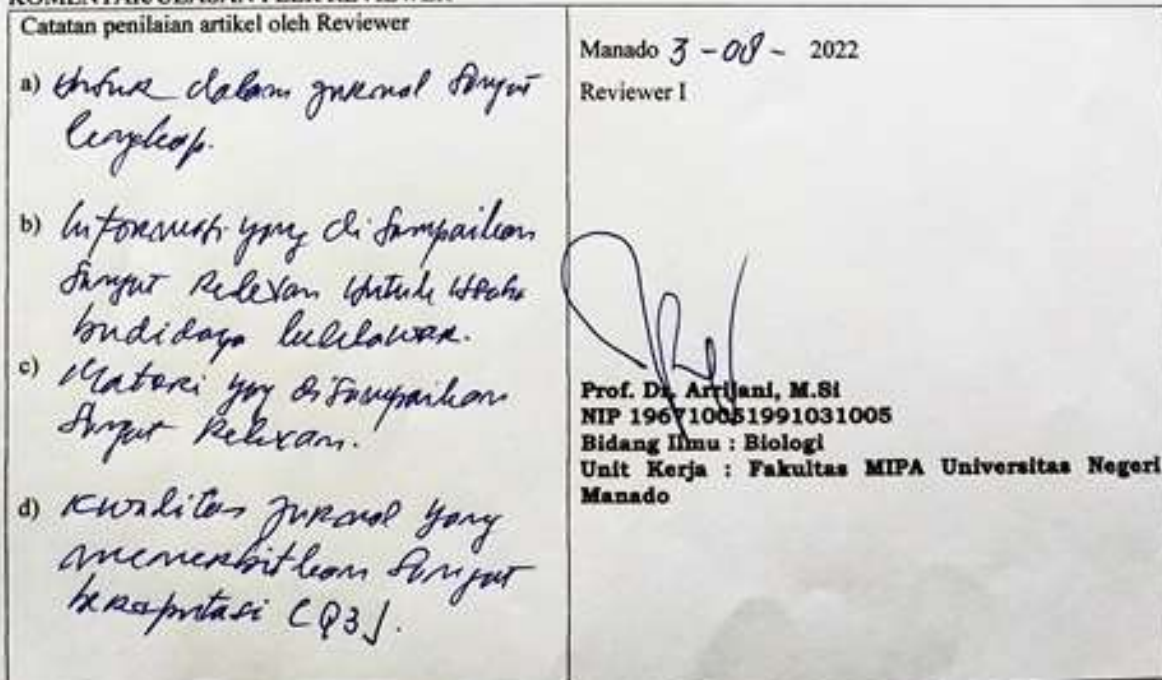 KOMENTAR/ULASAN PEER REVIEWER
Catatan penilaian artikel oleh Reviewer
a) Unsur dalam jurnal sangat
lengkap.
b) Informasi yang disampaikan
sangat relevan untuk usaha
budidaya kelelawar.
c) Materi yg disampaikan
sangat relevan.
d) Kwalitas jurnal yang
menerbitkan sangat
bereputasi (Q3).
Manado 3 - 08 - 2022
Reviewer I
Prof. Dr. Arrijani, M.Si
NIP 196710051991031005
Bidang Ilmu : Biologi
Unit Kerja : Fakultas MIPA Universitas Negeri
Manado